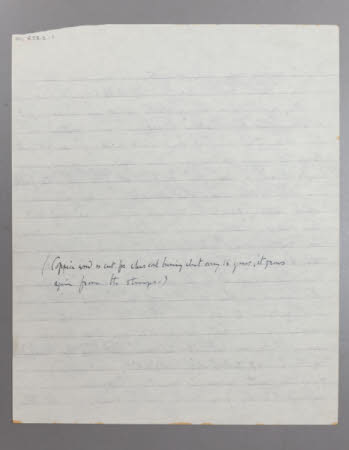 (Coppice wood is cut for charcoal burning about every 16 years, it grows
again from the stumps.)